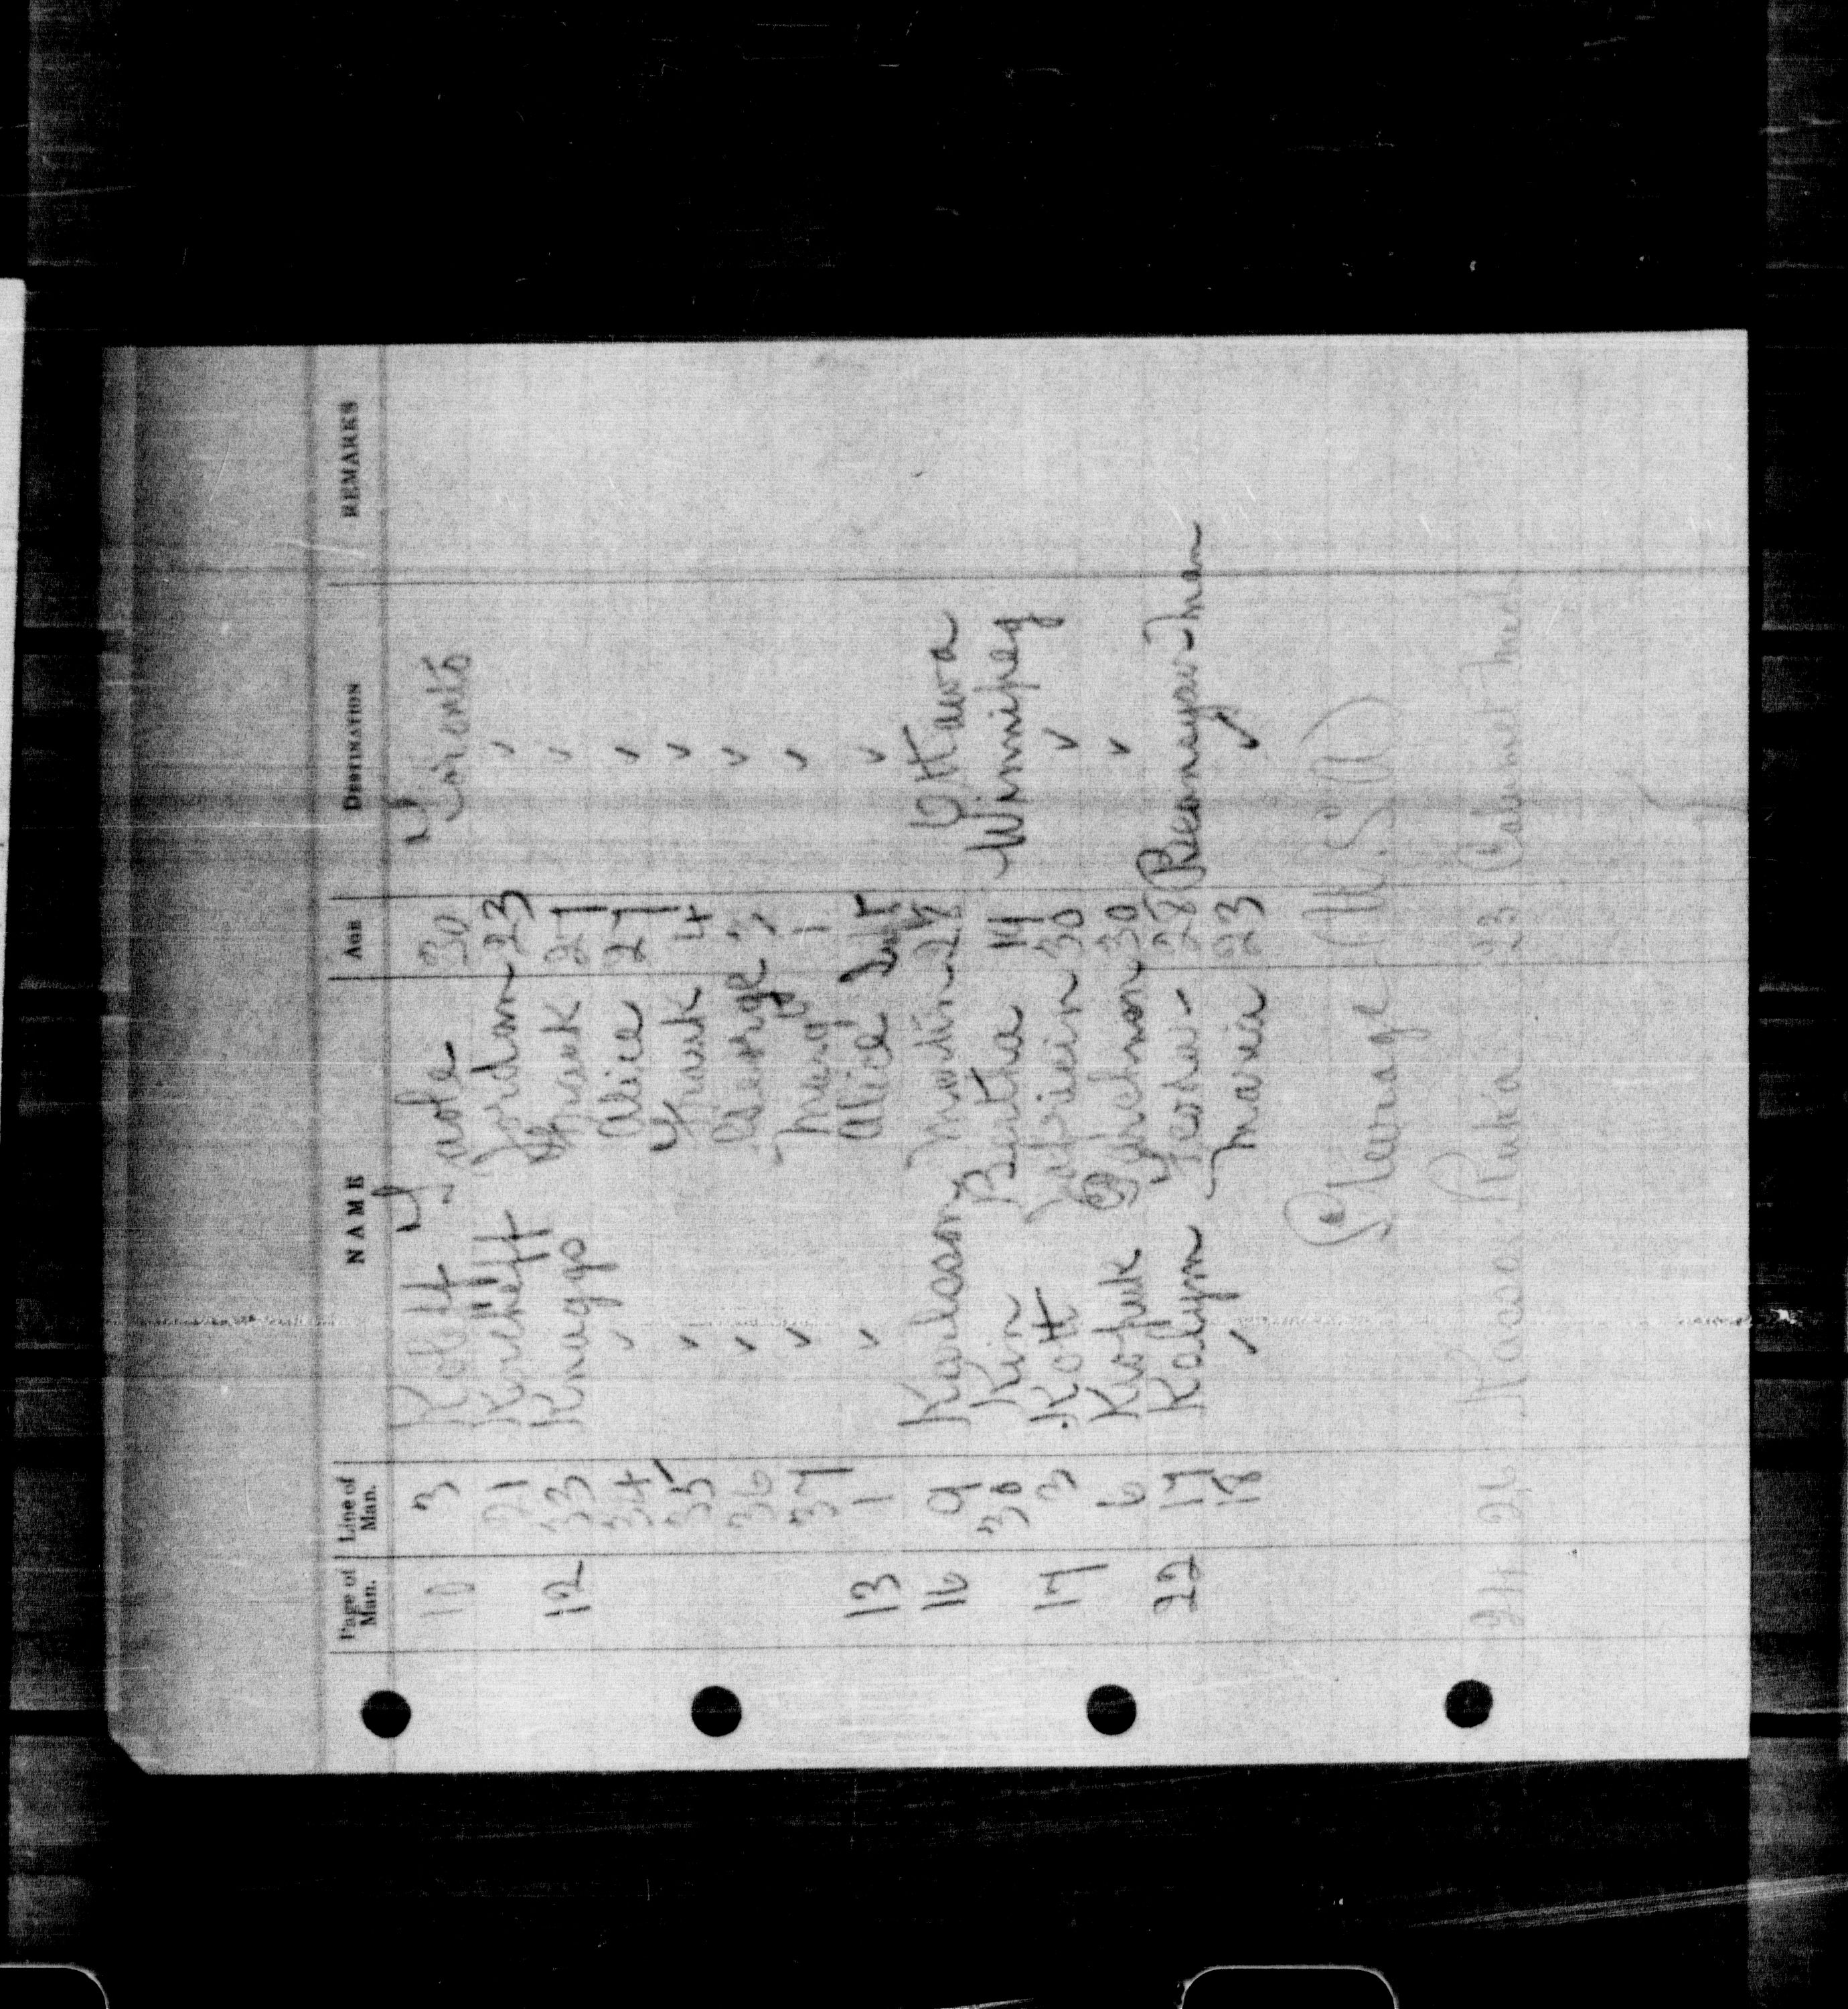 Page of Man. Line of Man. NAME AGE DESTINATION REMARKS
10 3 Koleff 30 Toronto
21 Kircheff Jordan 23 ✓
12 33 Knaggs Frank 27 ✓
34 ✓ Alice 27 ✓
35 ✓ Frank 4 ✓
36 ✓ George 3 ✓
37 ✓ Mary 1 ✓
13 1 ✓ Alice Inft ✓
16 9 Karlsson Martin 28 Ottawa
30 Kin Bertha 19 Winnipeg
17 3 Kott 30 ✓
6 30 ✓
22 17 Kalyn 28 Man
18 ✓ Maria 23 ✓
Steerage (U.S.A)
24 26 23 Calumet Mich